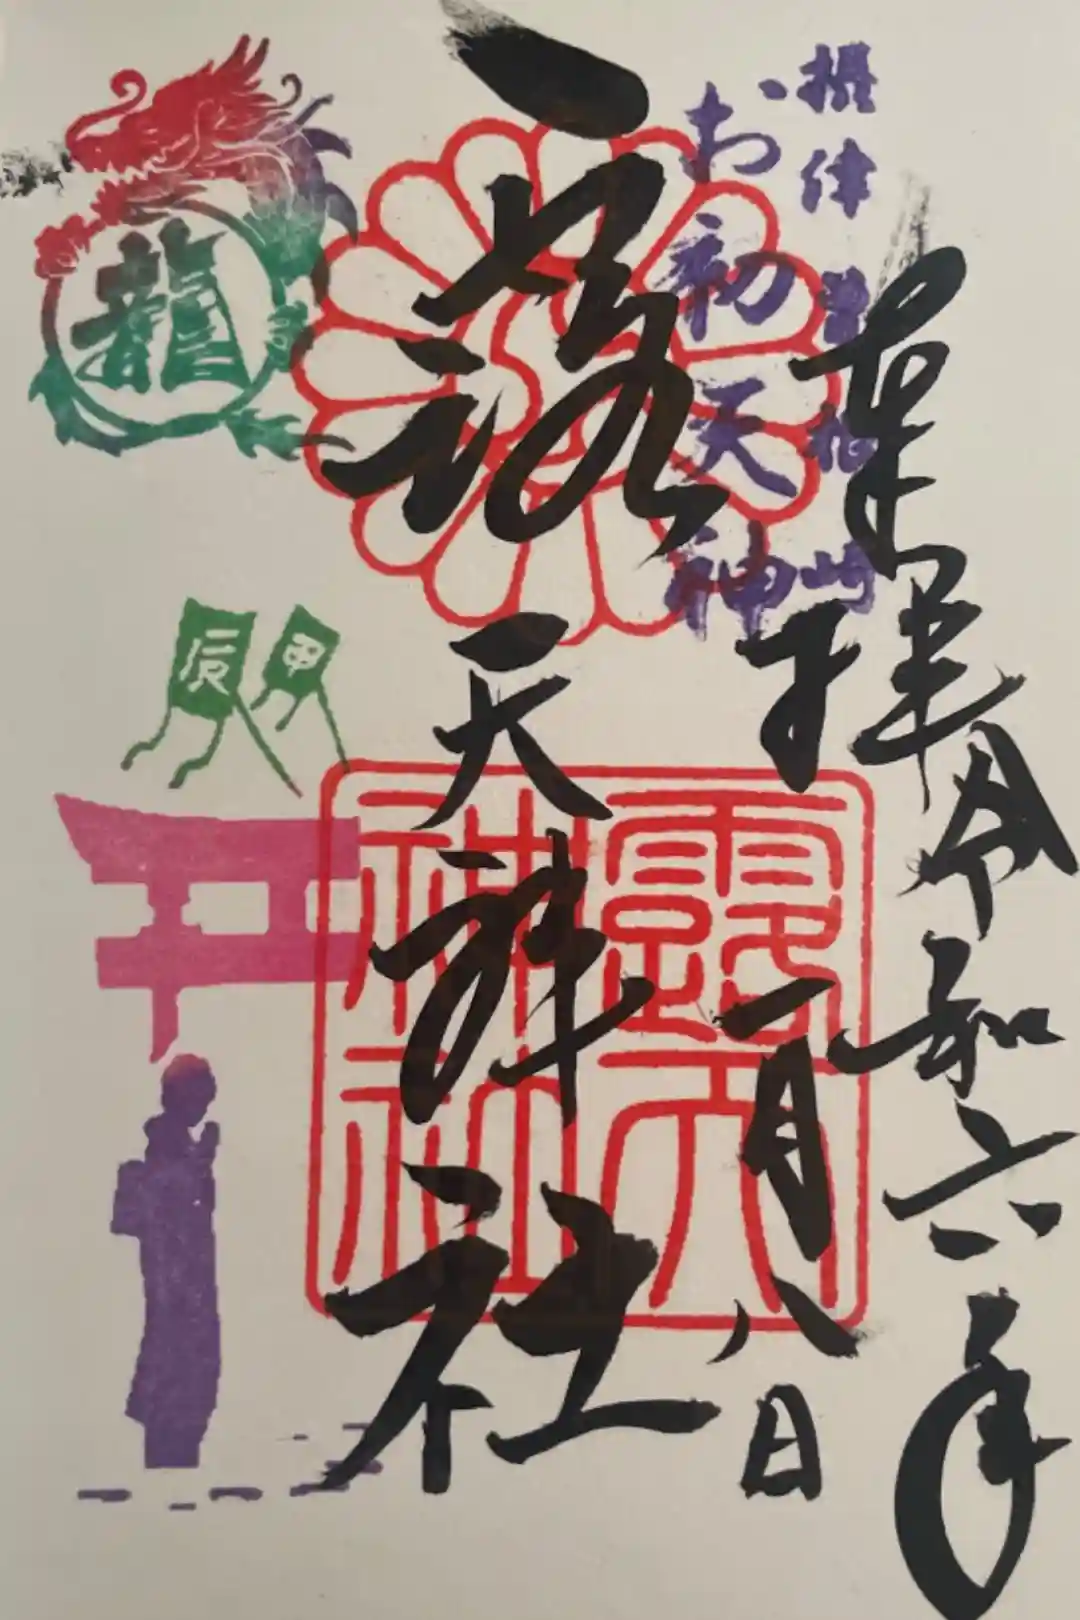 奉拝 令和六年
十一月八日
摂津 曽根崎
お初天神
露天神社
露天
神社
龍
甲
辰